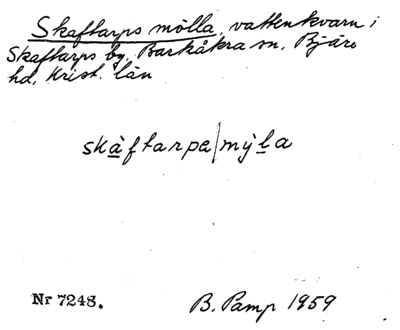 Skaftarps mölla, vattenkvarn i
Skaftarps by, Barkåkra sn, Bjäre
hd, Krist. län
skàftarpa|mỳla
Nr 7248.
B. Pamp 1959